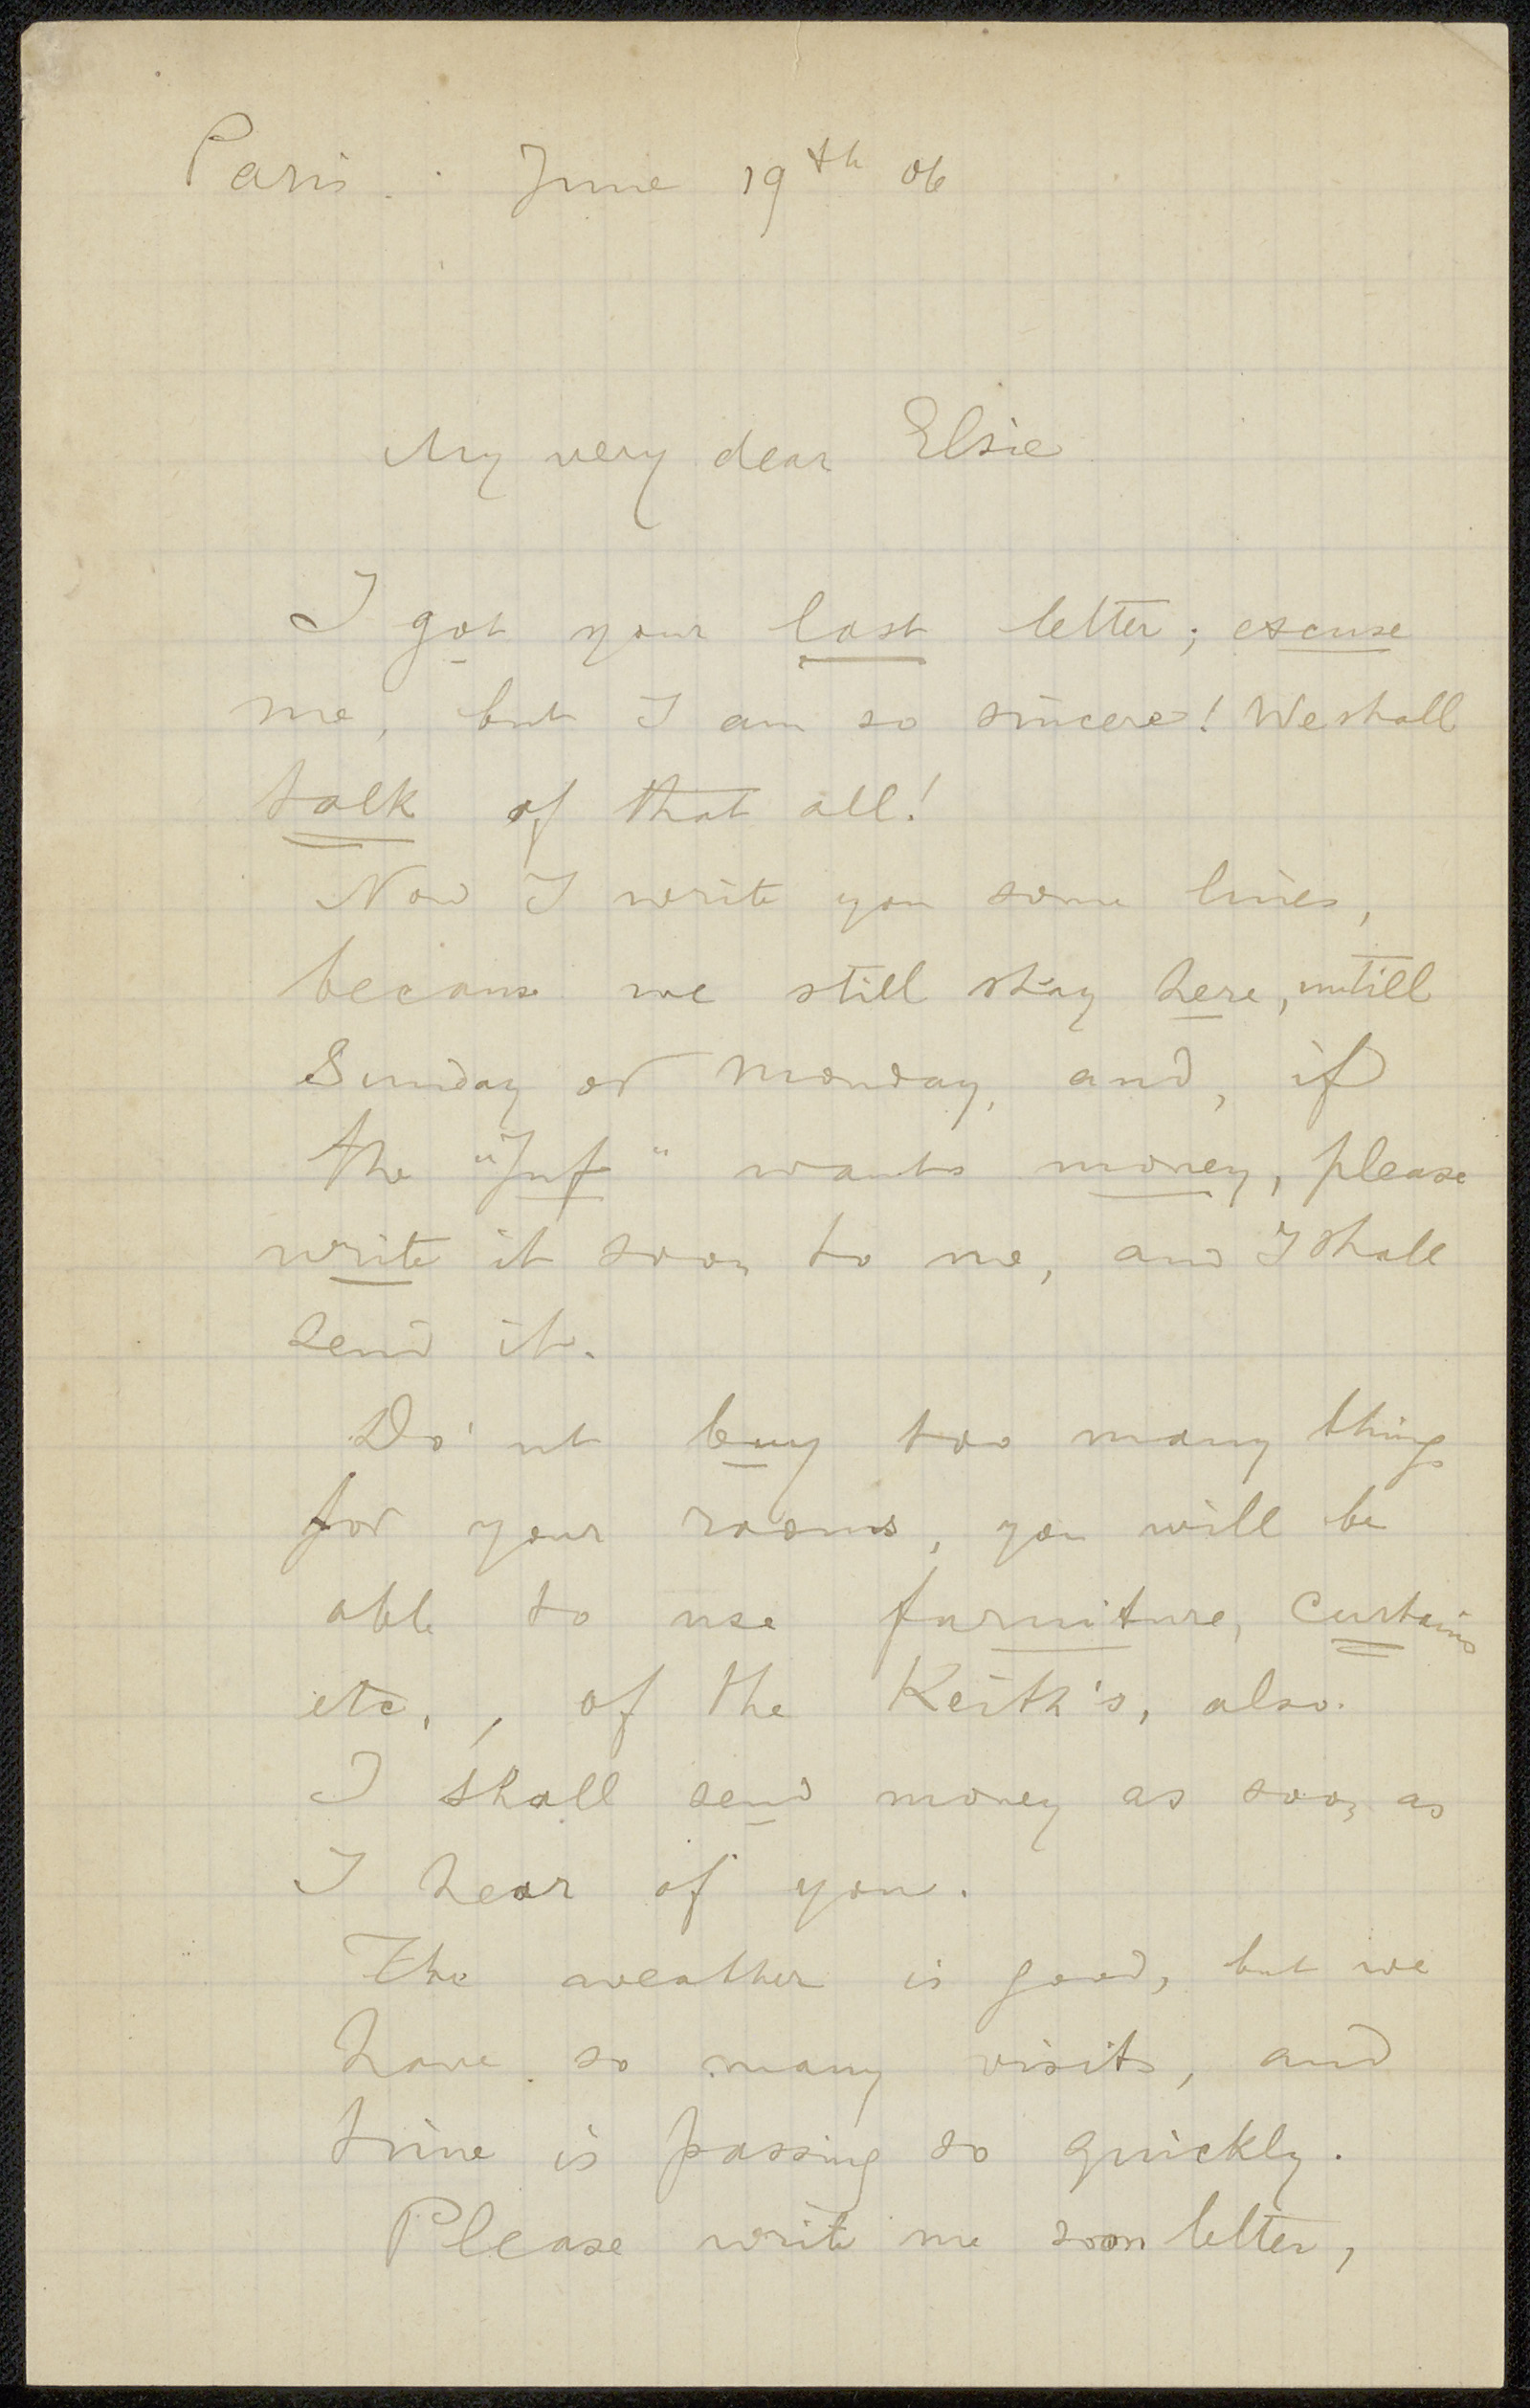 Paris. June 19th 06
My very dear Elsie
I got your last letter; excuse
me, but I am so sincere! We shall
talk of that all!
Now I write you some lines,
because we still stay here, untill
Sunday or Monday, and, if
the "Inf" wants money, please
write it soon to me, and I shall
send it.
Do'nt buy too many things
for your rooms, you will be
able to use furniture, curtains
etc., of the Keith's, also.
I shall send money as soon as
I hear of you.
The weather is good, but we
have so many visits, and
time is passing so quickly.
Please write me soon letter,